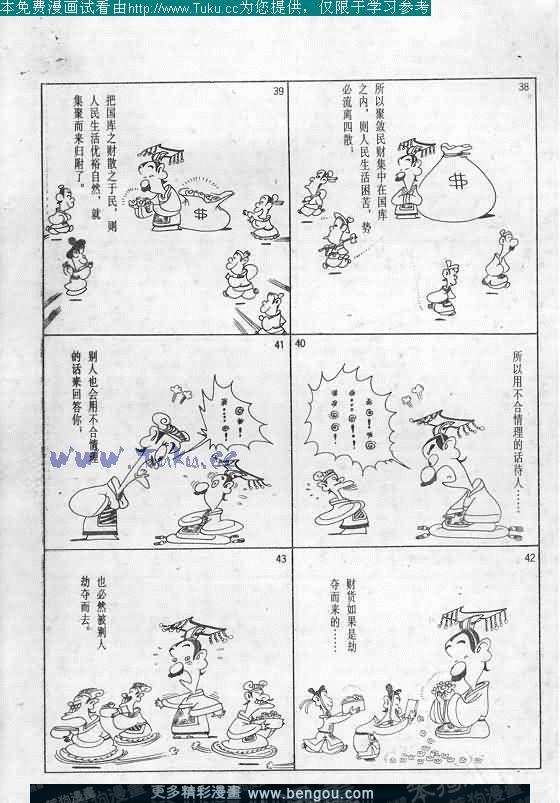 本免费漫画试看由http://www.Tuku.cc为您提供，仅限于学习参考
38
所以聚敛民财集中在国库
之内，则人民生活困苦，势
必流离四散；
$
39
把国库之财散之于民，则
人民生活优裕自然，就
集聚而来归附了。
$
40
所以用不合情理的话待人……
41
别人也会用不合情理
的话来回答你；
www.Tuku.cc
42
财货如果是劫
夺而来的……
43
也必然被别人
劫夺而去。
更多精彩漫畫 www.bengou.com